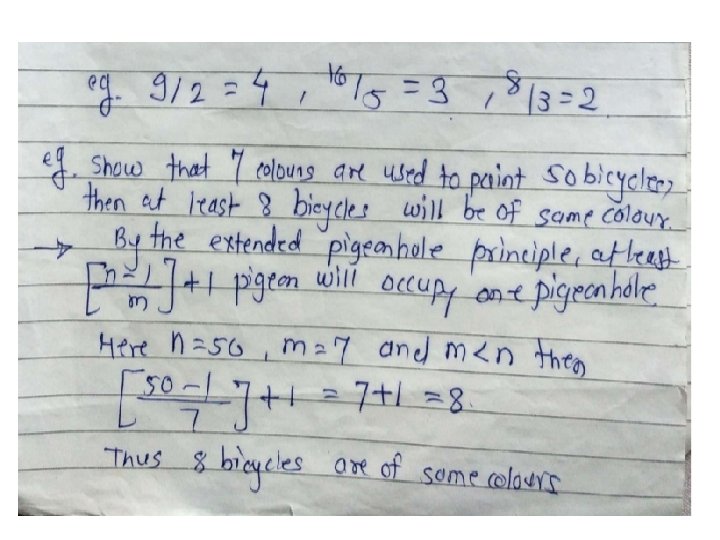 eg. 9/2 = 4 , 16/5 = 3 , 8/3 = 2
eg. Show that 7 colours are used to paint 50 bicycles,
then at least 8 bicycles will be of same colour.
→ By the extended pigeonhole principle, at least
[n-1/m]+1 pigeon will occupy one pigeonhole
Here n=50 , m=7 and m<n then
[50-1/7]+1 = 7+1 = 8.
Thus 8 bicycles are of same colours